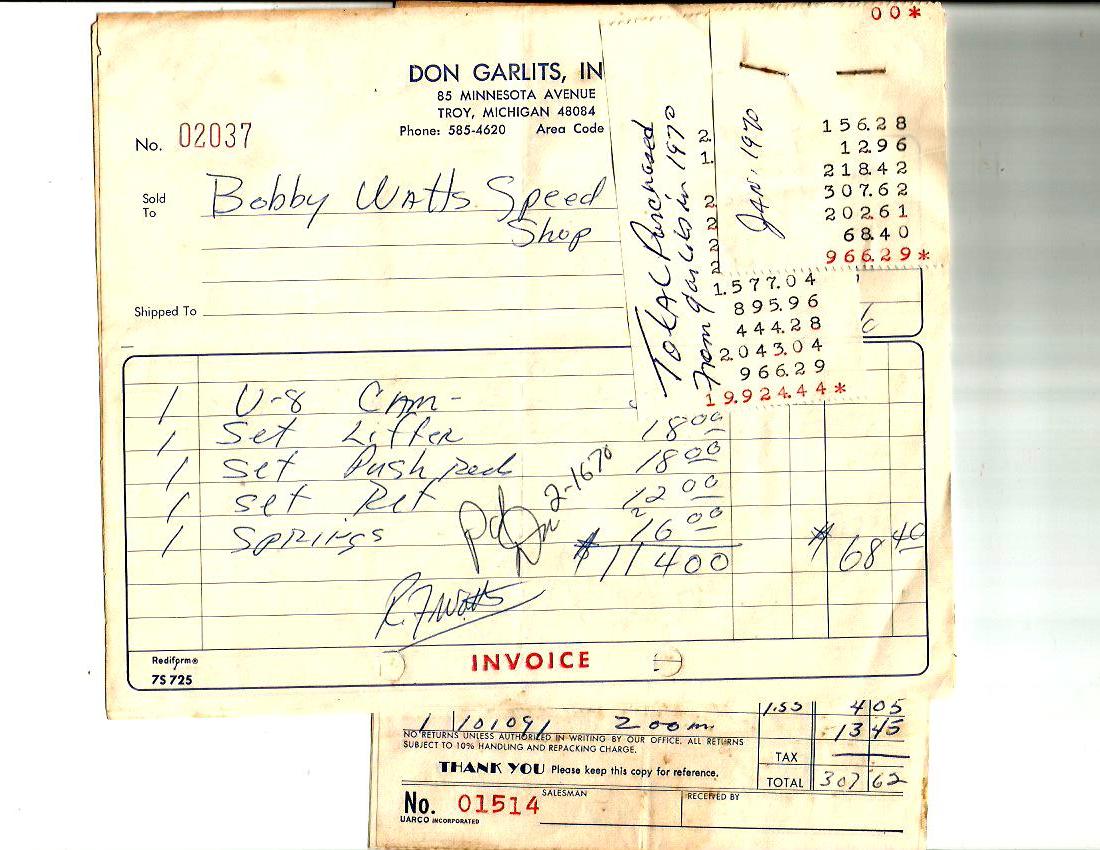 00*
DON GARLITS, IN
85 MINNESOTA AVENUE
TROY, MICHIGAN 48084
Phone: 585-4620 Area Code
No. 02037
Sold To Bobby Watts Speed
Shop
Shipped To
1 U-8 Cam-
1 Set Lifter 18 00
1 Set Push Rods 18 00
1 Set Ret 12 00
1 Springs 16 00
$ 114 00 $ 68 40
Pd 2-16 70
R.F. Watts
Rediform®
7S 725
INVOICE
Total Purchased
From Garlits in 1970
2.
1.
2
2
2
2
Jan, 1970
156.28
12.96
218.42
307.62
202.61
68.40
966.29*
1.577.04
895.96
444.28
2.043.04
966.29
19.924.44*
1.55 4 05
1 101091 Zoom 13 45
NO RETURNS UNLESS AUTHORIZED IN WRITING BY OUR OFFICE. ALL RETURNS
SUBJECT TO 10% HANDLING AND REPACKING CHARGE.
TAX
THANK YOU Please keep this copy for reference.
TOTAL 307 62
No. 01514
SALESMAN
RECEIVED BY
UARCO INCORPORATED